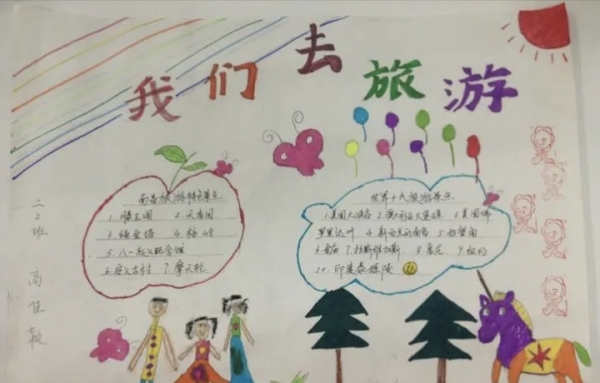 我们去旅游
南昌旅游特色景点
1.滕王阁 2.天香园
3.绳金塔 4.
5.八一起义纪念馆
6.安义古村 7.摩天轮
世界十大旅游景点
1.美国大峡谷 2.澳大利亚大堡礁 3.美国佛
罗里达州 4.新西兰的南岛 5.好望角
6. 7.拉斯维加斯 8.悉尼 9.纽约
10.印度泰姬陵
二2班
高佳毅